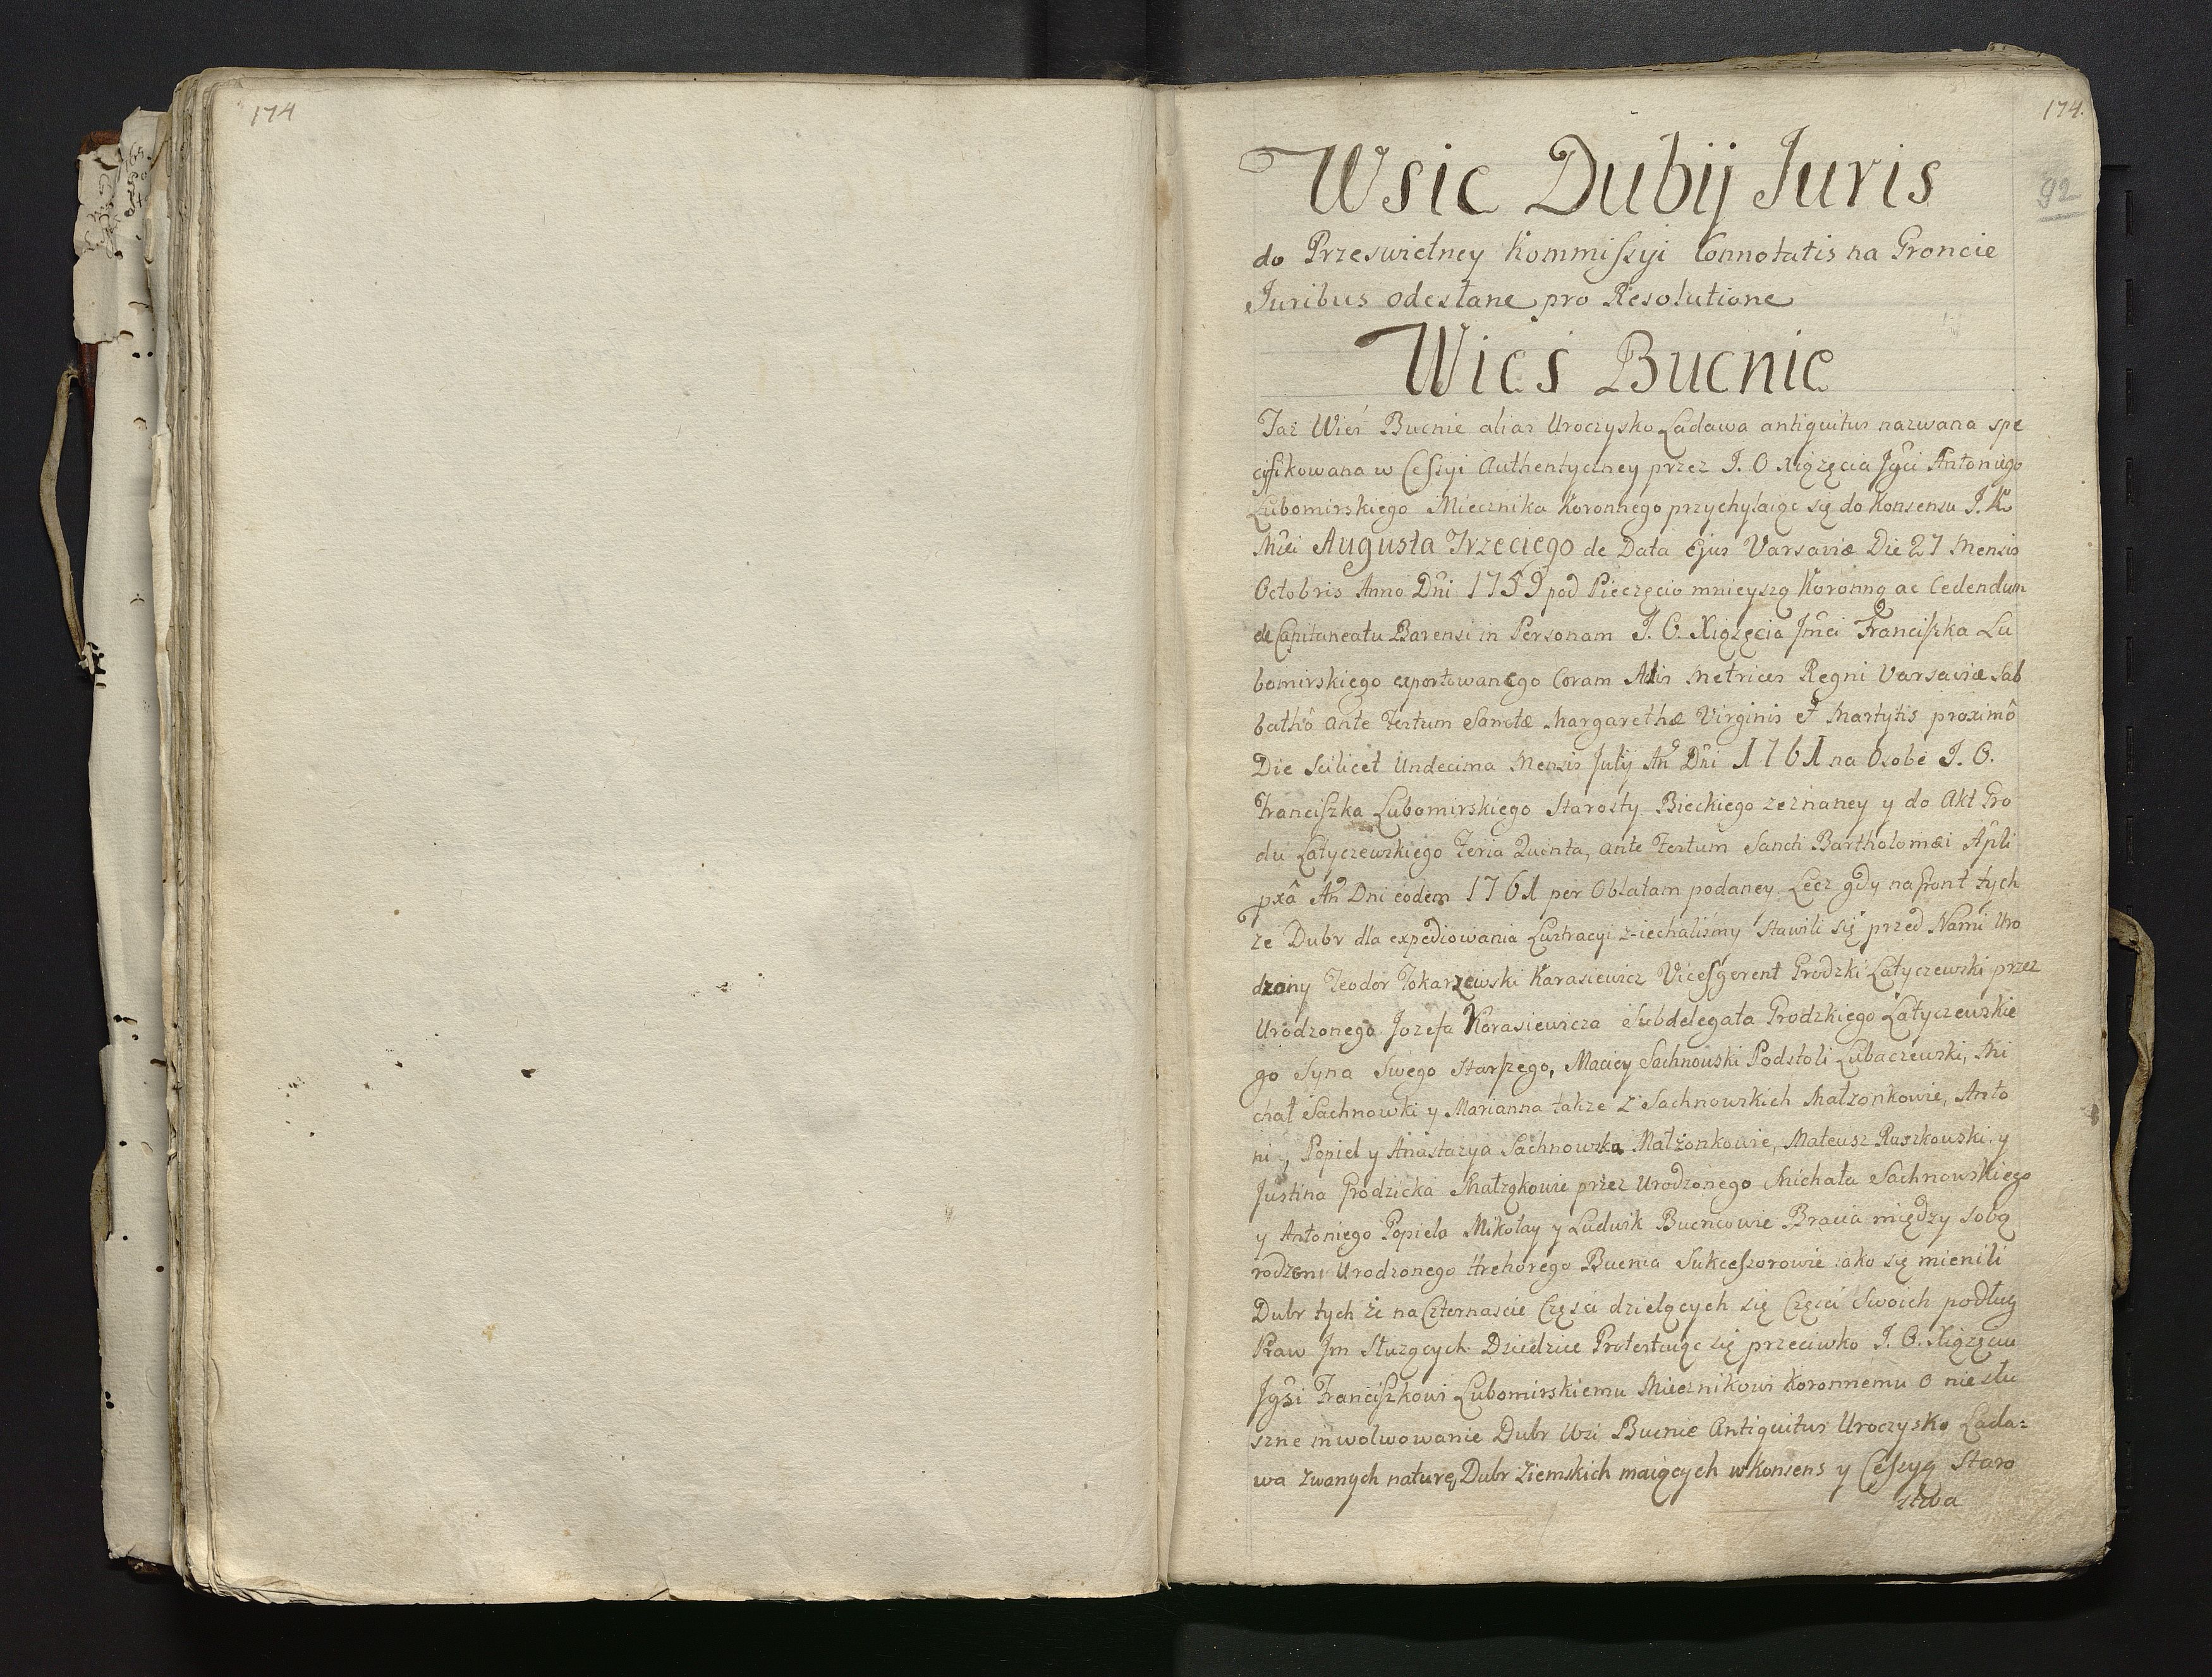 174
174.
92
Wsie Dubij Juris
do Przeswietney Kommissyi Connotatis na Groncie
Juribus odesłane pro Resolutione
Wieś Bucnie
Taż Wieś Bucnie alias Uroczysko Ladawa antiquitus nazwana spe
cifikowana w Cessyi Authentyczney przez J. O Xiążęcia Jgći Antoniego
Lubomirskiego Miecznika Koronnego przychylaiąc się do Konsensu J. K
Mći Augusta Trzeciego de Data Ejus Varsaviæ Die 27 Mensis
Octobris Anno Dni 1759 pod Pieczęcio mnieyszą Koronną ac Cedendum
de Capitaneatu Barensi in Personam J. O. Xiążęcia Jmći Franciszka Lu
bomirskiego exportowanego Coram Actis Metrices Regni Varsaviæ Sab
bathô ante Festum Sanctæ Margarethæ Virginis et Martyris proximô
Die Scilicet Undecima Mensis July An Dni 1761 na Osobe J. O.
Franciszka Lubomirskiego Starosty Bieckiego zeznaney y do Akt Gro
du Latyczewskiego Feria Quinta, ante Festum Sancti Bartholomæi Apli
pxâ An Dni eodem 1761 per Oblatam podaney. Lecz gdy na Gront tych
że Dubr dla expediowania Lustracyi z-iechaliśmy Stawili się przed Nami Uro
dzony Teodor Tokarzewski Karasiewicz Vicesgerent Grodzki Latyczewski przez
Urodzonego Jozefa Karasiewicza Subdelegata Grodzkiego Latyczewskie
go Syna Swego Starszego, Maciey Sachnowski Podstoli Lubaczewski, Mi
chał Sachnowki y Marianna także z Sachnowskich Małżonkowie, Anto
ni, Popiel y Anastazya Sachnowska Małżonkowie, Mateusz Ruszkowski y
Justina Grodzicka Małżąkowie przez Urodzonego Michała Sachnowskiego
y Antoniego Popiela Mikołay y Ludwik Bucniowie Bracia między sobą
rodzeni Urodzonego Hrehorego Bucnia Sukcessorowie iako się mienili
Dubr tych że na Czternaście Częsci dzielących się Częsci Swoich podług
Praw Jm Służących Dziedzice Protestuiąc się przeciwko J. O. Xiążęciu
Jgśi Franciszkowi Lubomirskiemu Miecznikowi Koronnemu o nie słu
szne inwolwowanie Dubr Wsi Bucnie Antiquitus Uroczysko Lada=
wa zwanych naturę Dubr Ziemskich maiących w Konsens y Cessyą Staro
stwa